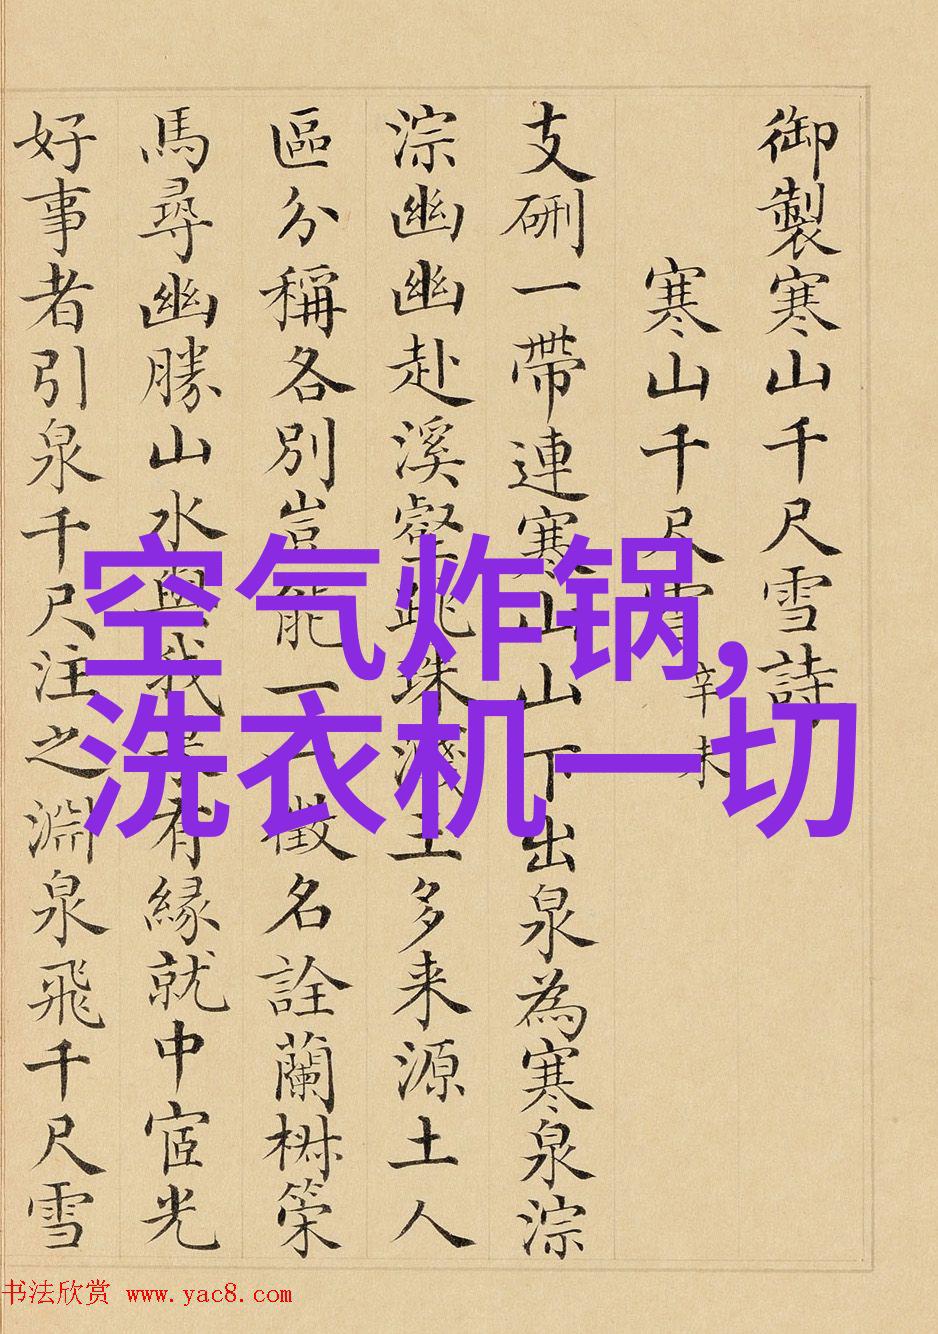 御製寒山千尺雪詩
寒山千尺雪 辛未
支硎一帶連寒山山下出泉為寒泉淙
淙幽幽赴溪壑跳珠濺玉多来源土人
區分稱各別豈能一一徵名詮蘭策
馬尋幽勝山水與我有緣就中宧光
好事者引泉千尺注之淵泉飛千尺雪
空气炸锅,
洗衣机一切
书法欣赏 www.yac8.com